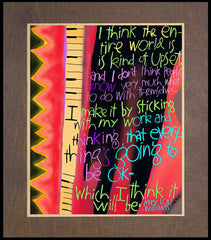 I think the en-
tire world is
is kind of upset
and I don't think people
know very much what
to do with themselves.
I make it by sticking
with my work and
thinking that every-
thing's going to
be OK-
which I think it
will be.